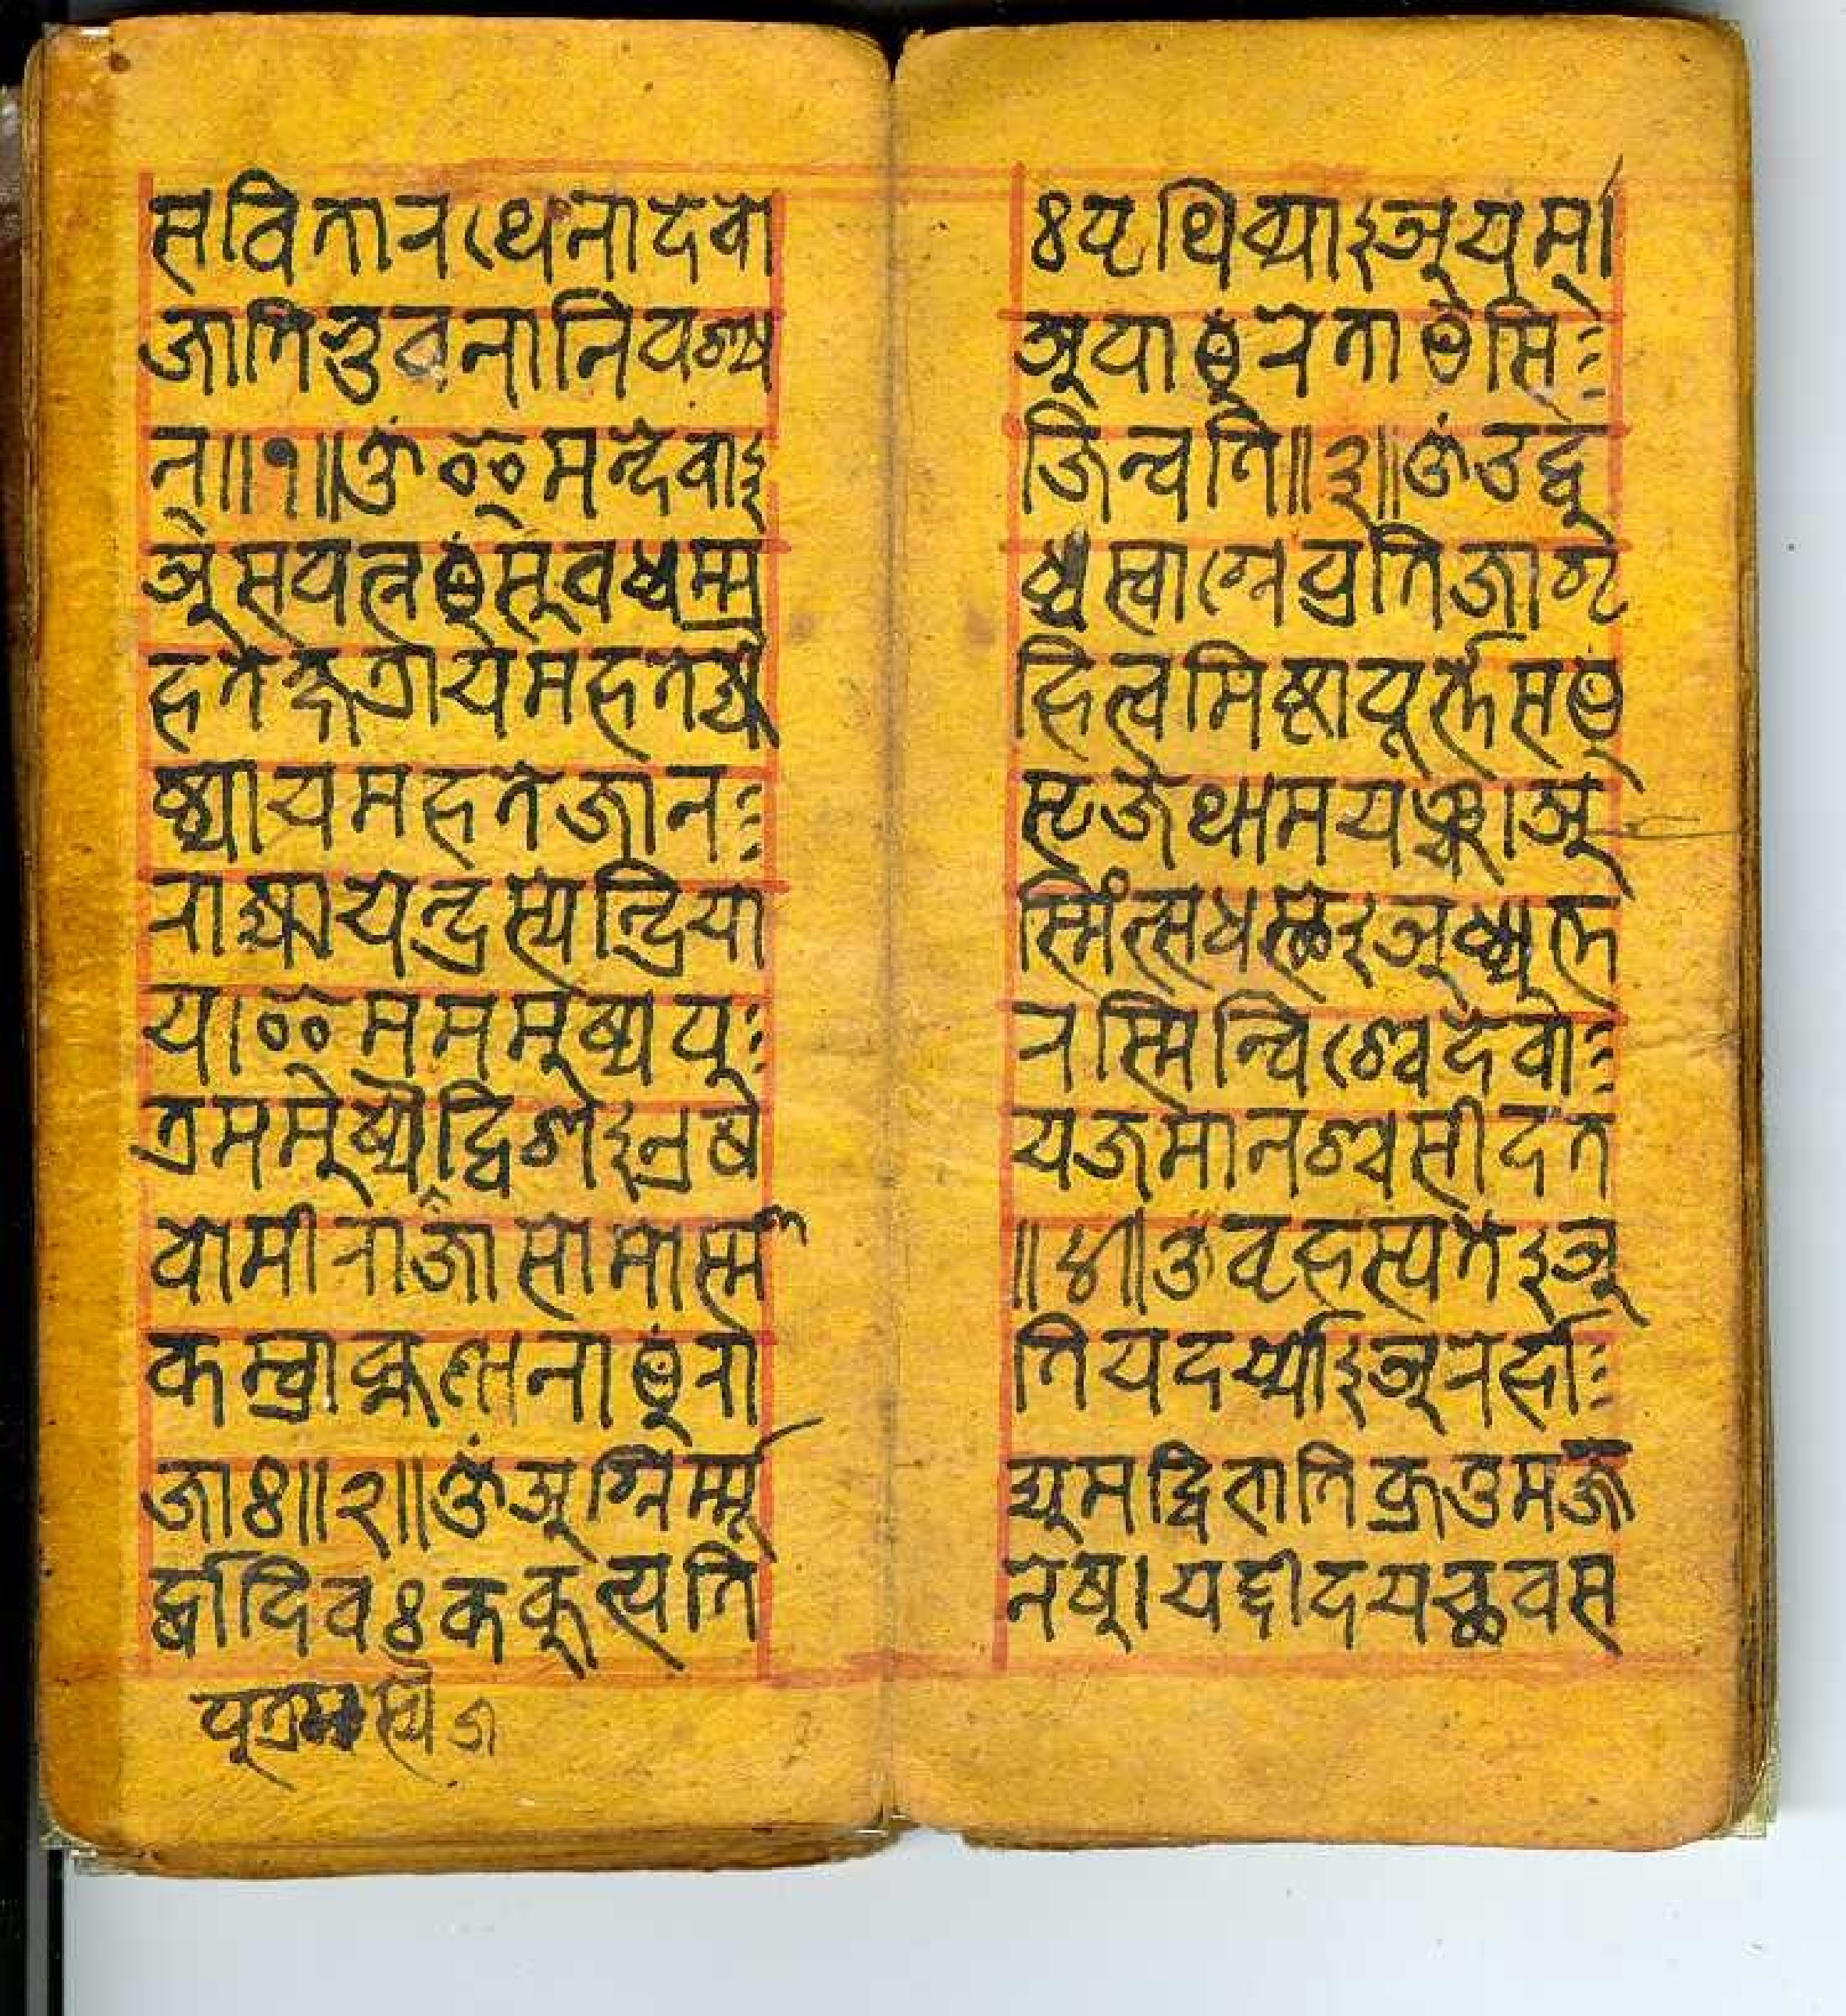 सवितारथेनादेवो
जातिभुवनानिपश्य
न्॥१॥ॐइमन्देवाऽ
असपत्नꣳसुवध्वम्म
हतेक्षत्रायमहतेज्यै
ष्ठ्यायमहतेजानः
राज्यायेन्द्रस्येन्द्रिया
य।इमममुष्यपुः
त्रममुष्यैद्विशेऽएषे
वोमीराजासोमोस्मा
कम्ब्राह्मणानाꣳरा
जाः॥२॥ॐअग्निर्म्मू
र्द्धादिवःककुत्पति
पुत्रमस्यैज
ःपृथिव्याऽअयम्।
अपाꣳरेताꣳसिः
जिन्वति॥३॥ॐउद्बु
ध्यस्वाग्नेप्रतिजागृ
हित्वमिष्टापूर्त्तेसꣳ
सृजेथामयञ्च।अ
स्मिंत्सधस्थेऽअध्युत्त
रस्मिन्विश्वेदेवाः
यजमानश्चसीदत
॥४॥ॐबृहस्पतेऽअ
तियदर्य्योऽअरर्हाः
द्युमद्विभातिक्रतुमज्ज
नेषु।यद्दीदयच्छवस